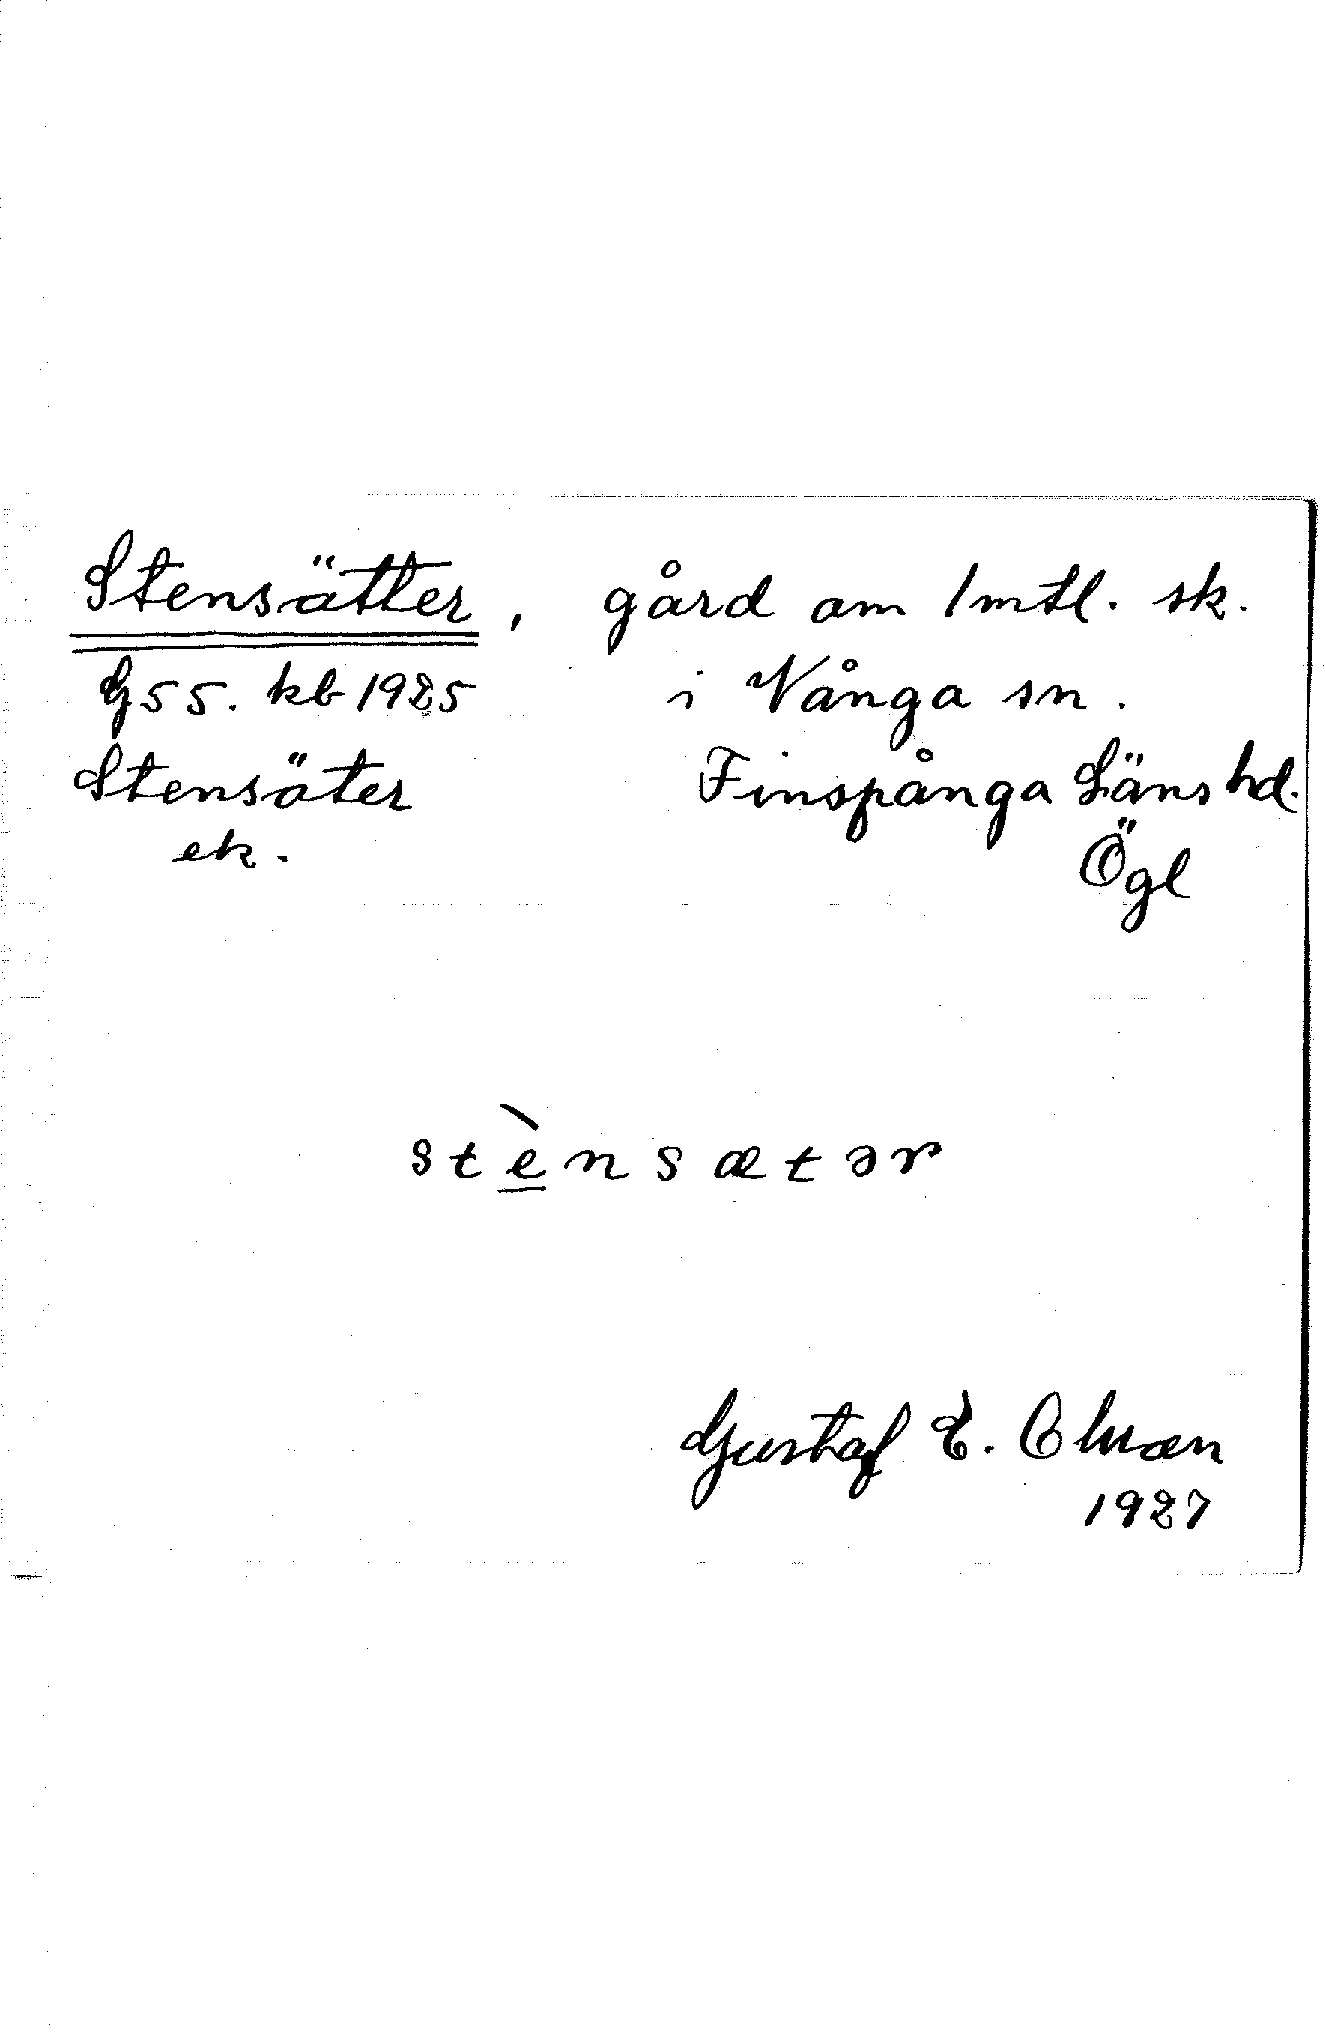 Stensätter, gård om 1 mtl. sk.
G55. kb 1925 i Vånga sn.
Stensäter Finspånga Läns hd.
ek. Ögl
stènsætər
Gustaf E.
1927